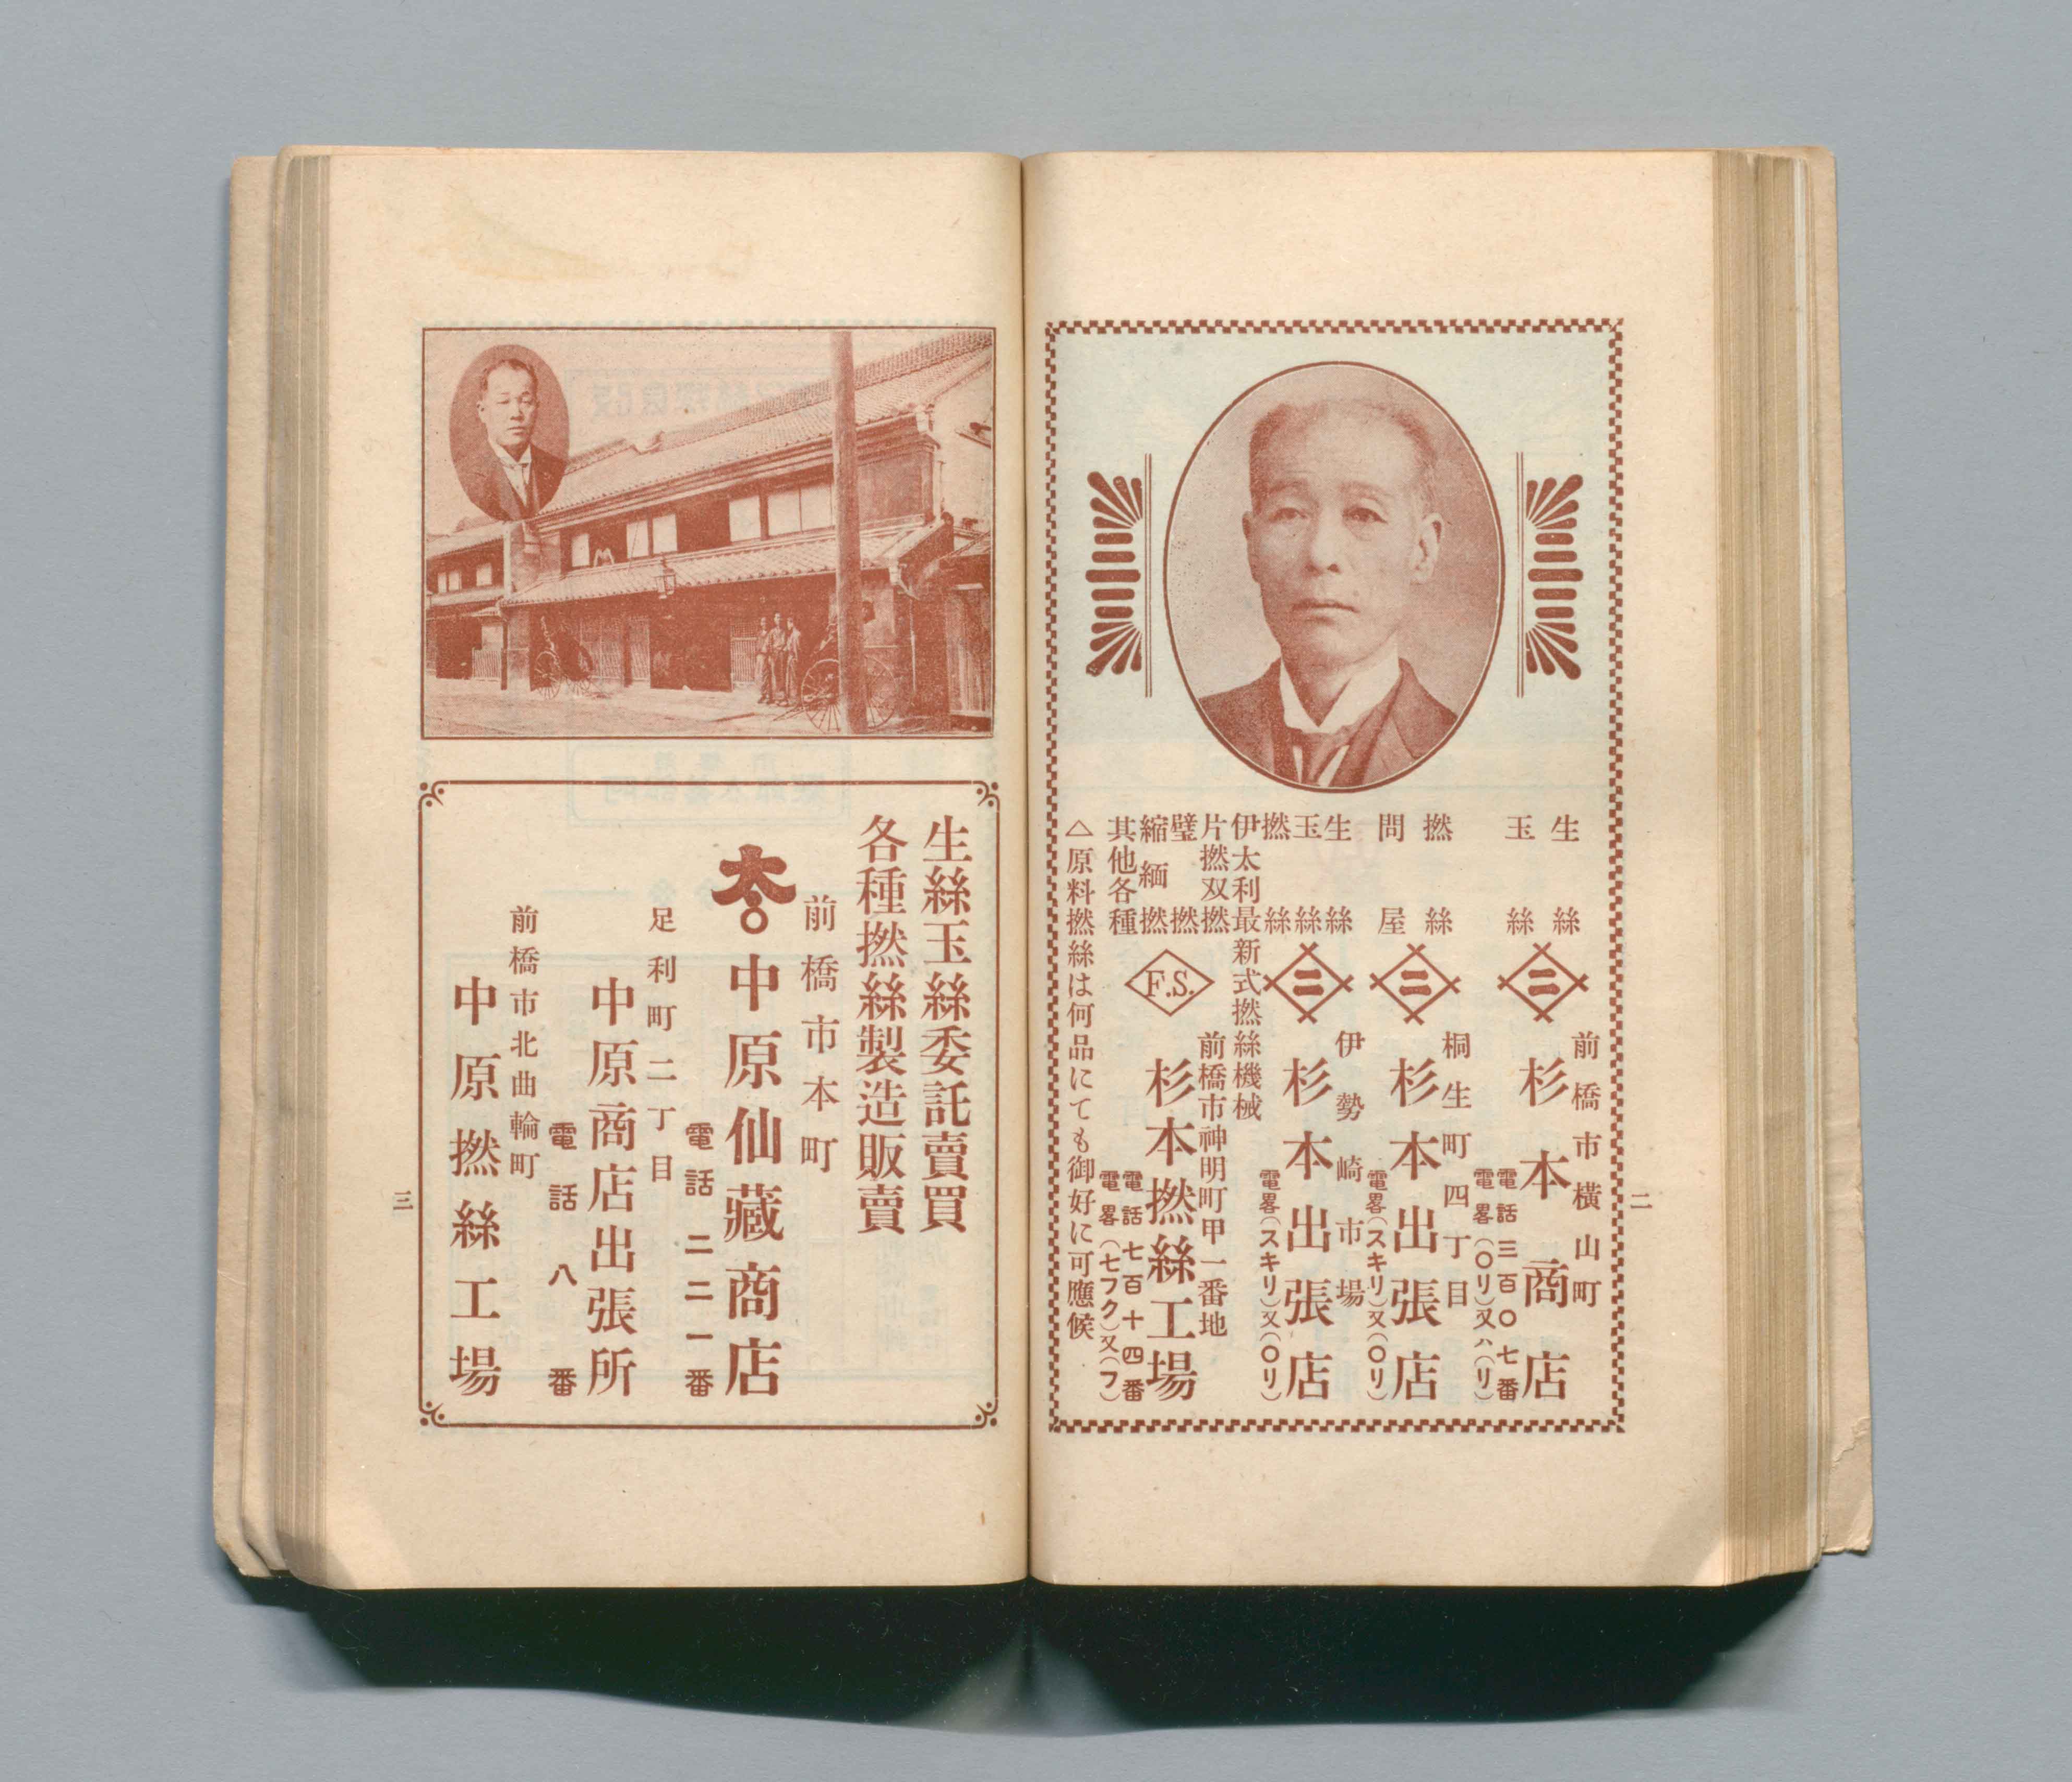 生絲
玉絲
前橋市橫山町
杉本商店
電話三百〇七番
電畧(〇リ)又ハ(リ)
撚絲
問屋
桐生町四丁目
杉本出張店
電畧(スキリ)又(〇リ)
生絲
玉絲
撚絲
伊勢崎市場
杉本出張店
電畧(スキリ)又(〇リ)
伊太利最新式撚絲機械
片撚双撚
璧撚
縮緬撚
其他各種
F.S.
前橋市神明町甲一番地
杉本撚絲工場
電話七百十四番
電畧(七フク)又(フ)
△原料撚絲は何品にても御好に可應候
二
生絲玉絲委託賣買
各種撚絲製造販賣
前橋市本町
中原仙藏商店
電話二二一番
足利町二丁目
中原商店出張所
電話八番
前橋市北曲輪町
中原撚絲工場
三